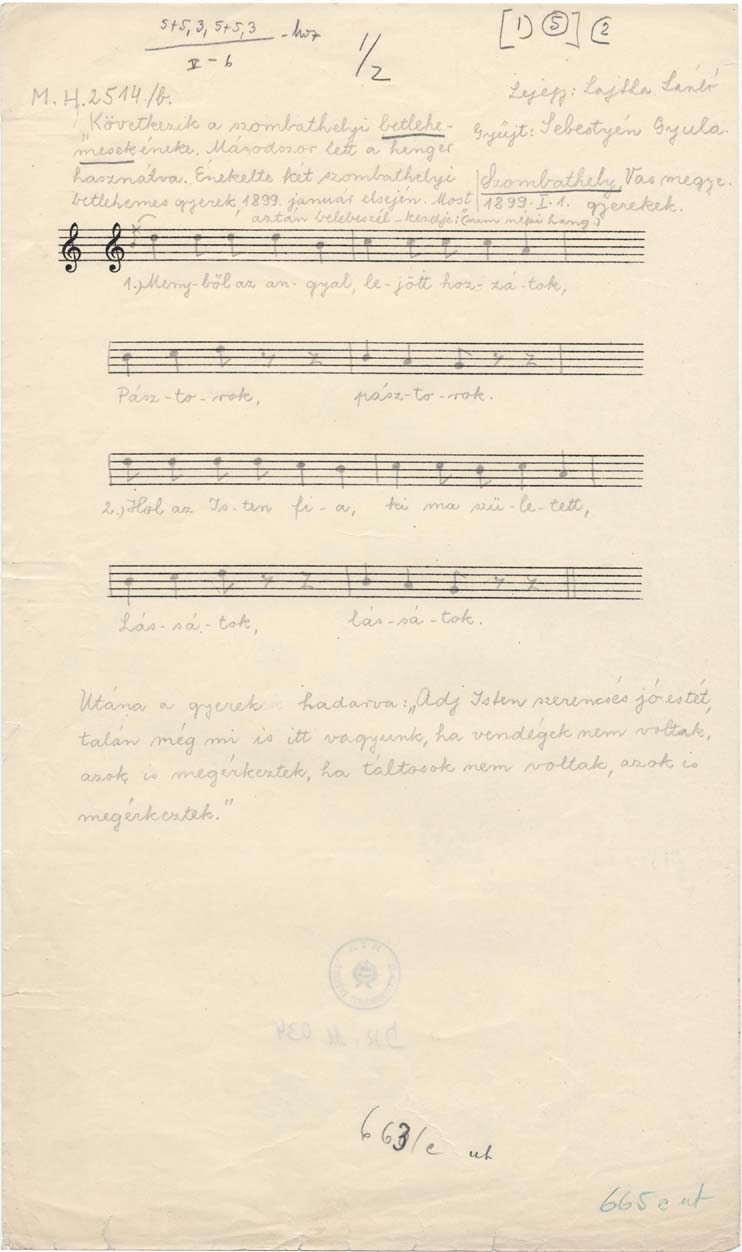 5+5, 3, 5+5, 3 -hoz
V - 6
1/2
[1) (5)] (2
M. H. 2514/b.
Lejegy: Lajtha László
Gyűjt: Sebestyén Gyula.
Szombathely, Vas megye.
1899. I. 1. gyerekek.
"Következik a szombathelyi betlehe-
mesek éneke. Másodszor lett a henger
használva. Énekelte két szombathelyi
betlehemes gyerek 1899. január elsején. Most
aztán belebeszél - kezdje!" (nem népi hang.)
1.) Meny-ből az an-gyal, le-jött hoz-zá-tok,
Pász-to-rok, pász-to-rok.
2.) Hol az Is-ten fi-a, ki ma szü-le-tett,
Lás-sá-tok, lás-sá-tok.
Utána a gyerek hadarva: „Adj Isten szerencsés jó estét,
talán még mi is itt vagyunk, ha vendégek nem voltak,
azok is megérkeztek, ha táltosok nem voltak, azok is
megérkeztek."
663/c ut
665 c ut